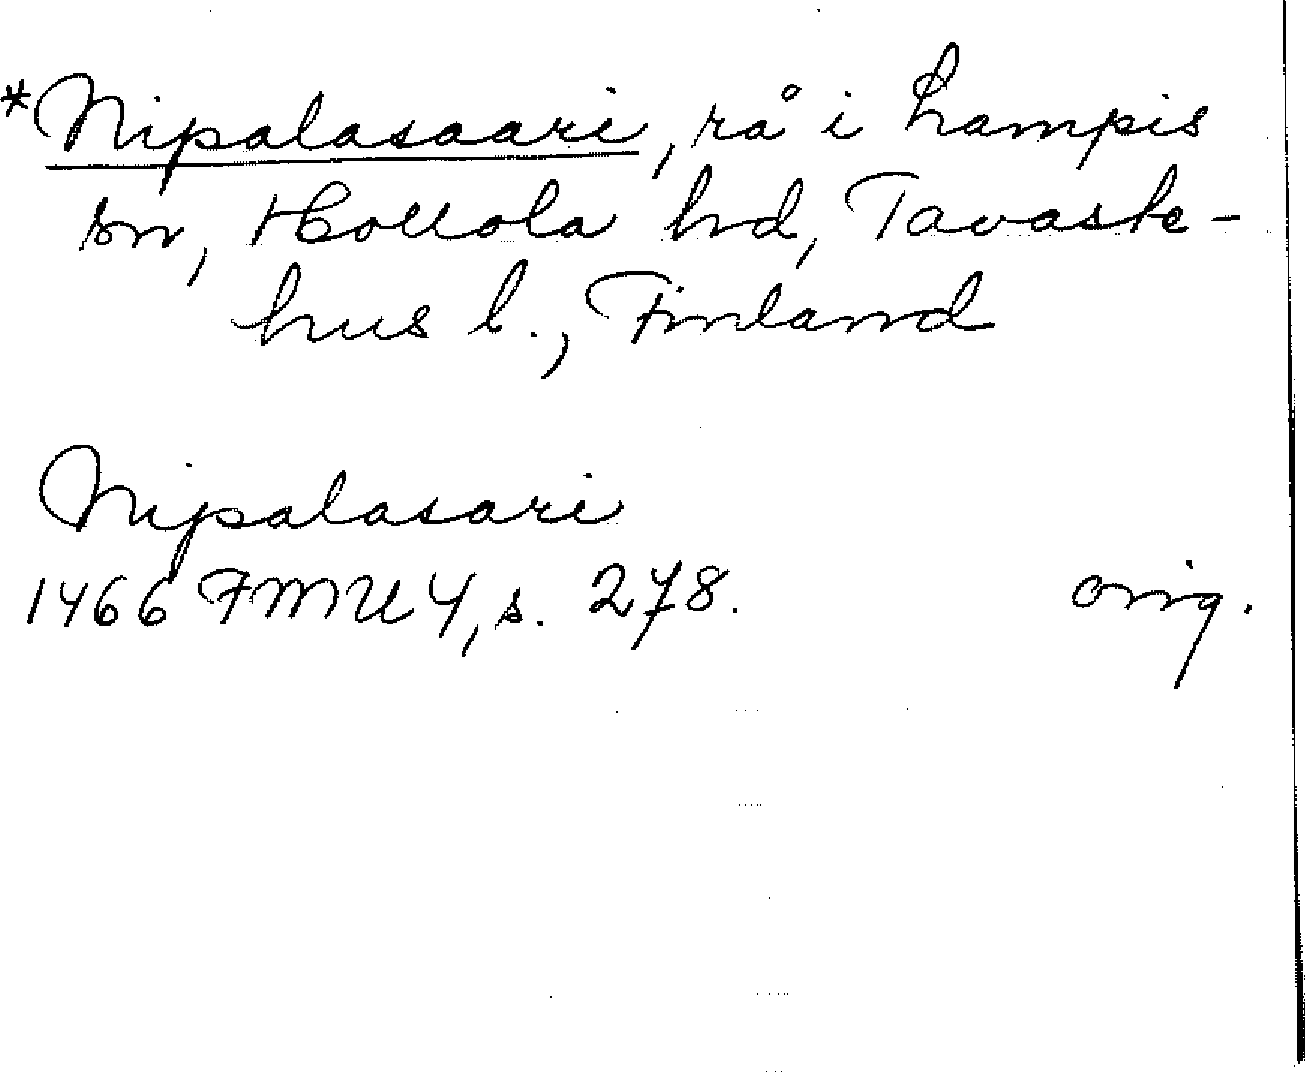 *Nipalasaari, rå i Lampis
sn, Hollola hd, Tavaste-
hus l., Finland
Nipalasari
1466 FMU 4, s. 278.
orig.